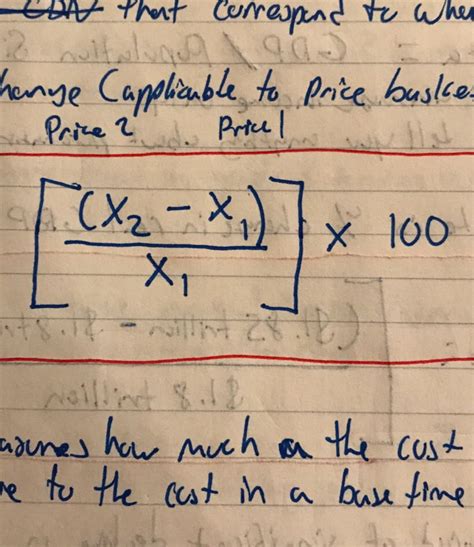 that correspond to whe
hange (applicable to price baske
Price 2 Price 1
[(X₂ - X₁)
X₁] × 100
asures how much the cost
me to the cost in a base time